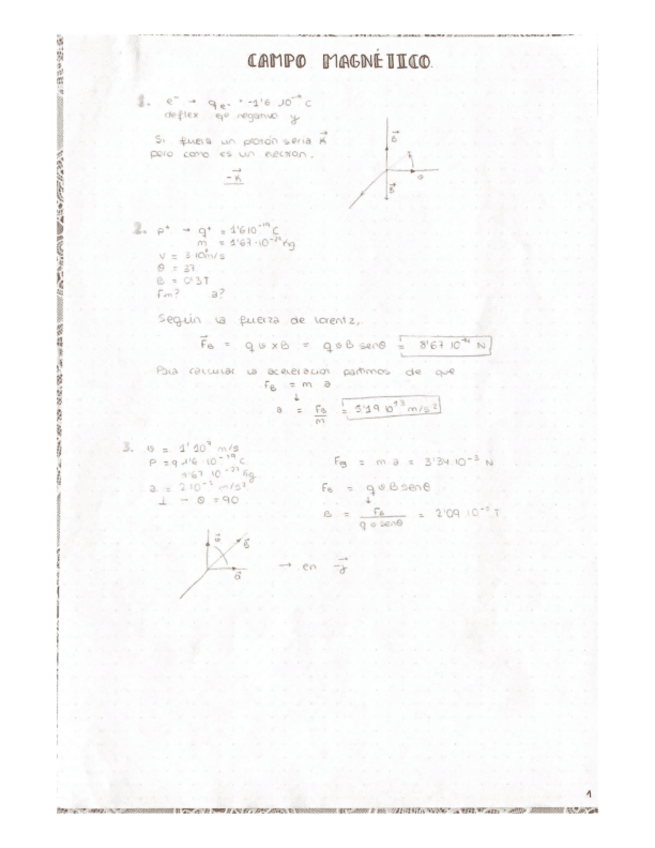 CAMPO MAGNÉTICO.
1. e⁻ → q e⁻ = -1'6 · 10⁻¹⁹ C
deflex eje negativo y
Si fuera un protón sería k⃗
pero como es un electrón,
-k⃗
B⃗
2. p⁺ → q⁺ = 1'6·10⁻¹⁹ C
m = 1'67·10⁻²⁷ kg
θ = 37
B = 0'3T
Fm? a?
Según la fuerza de Lorentz,
F⃗B = q v x B = q v B senθ = 8'67·10⁻¹⁴ N
Para calcular la aceleración partimos de que
FB = m a
↓
a = FB/m = 5'19·10¹³ m/s²
3. v = 1·10⁷ m/s
⊥ → θ = 90
FB = q v B senθ
↓
B = FB / q v senθ
→ en -y⃗
1